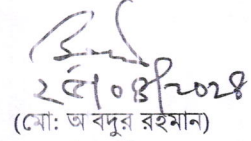 ২৫|০৪|২০২৪
(মো: অ বদুর রহমান)